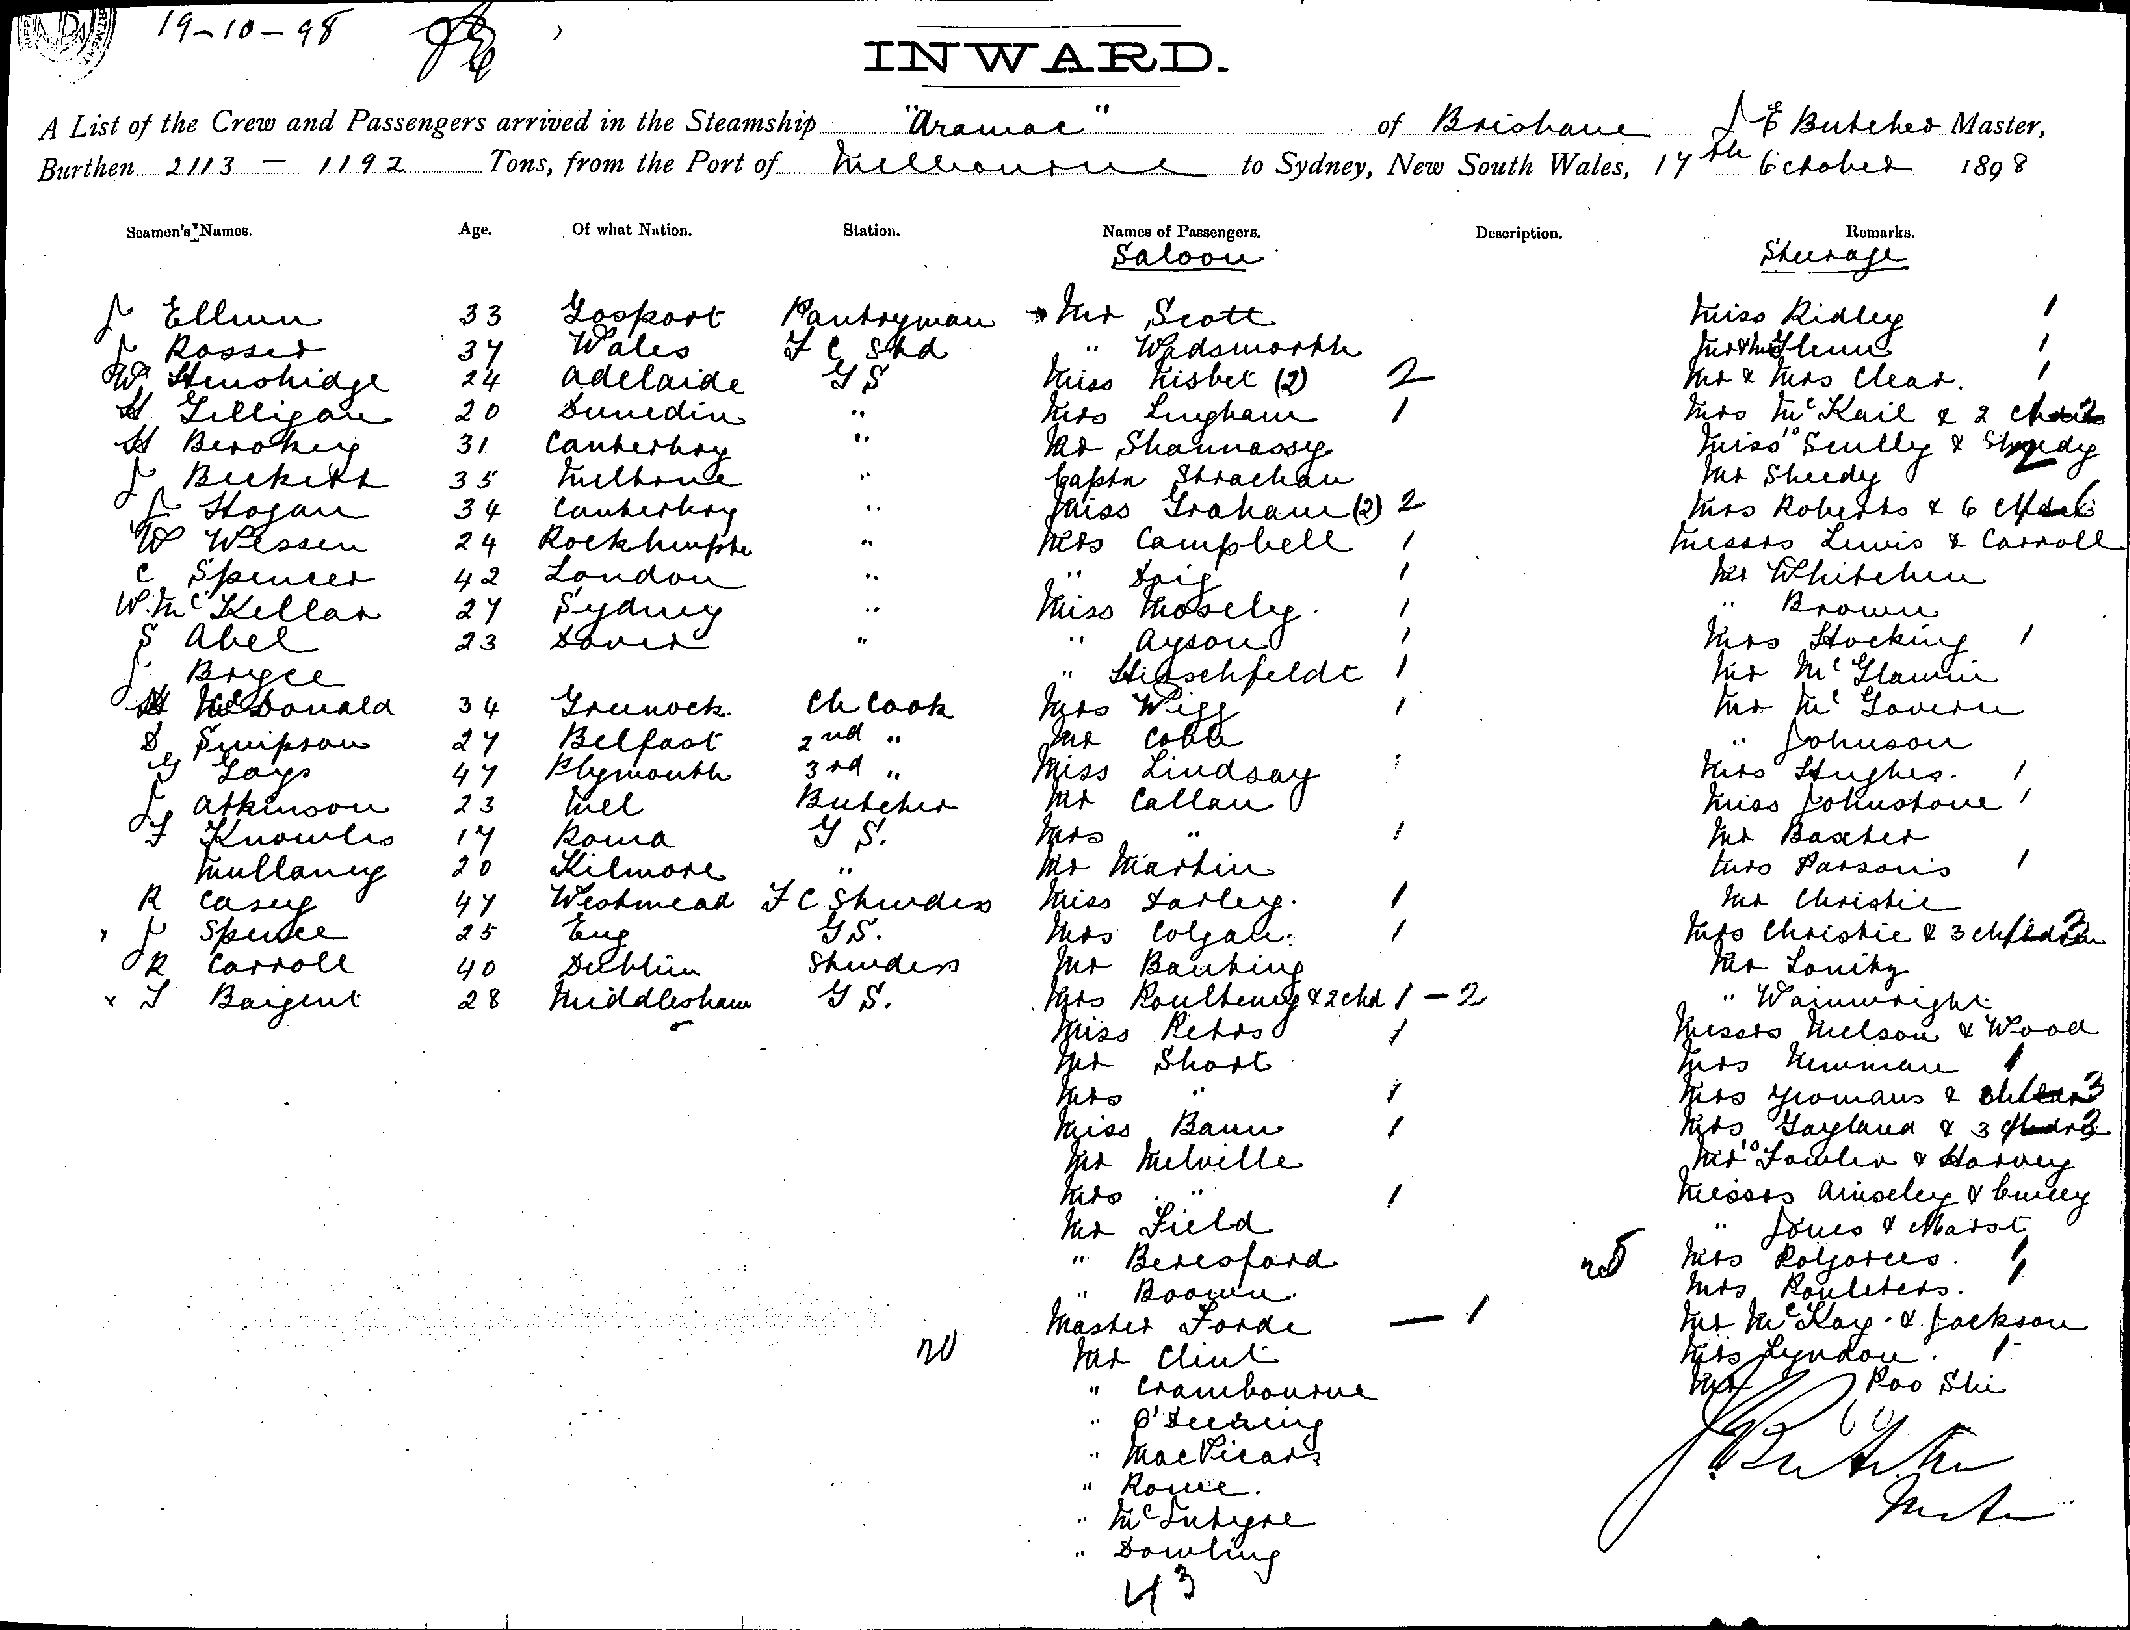 19-10-98
INWARD.
A List of the Crew and Passengers arrived in the Steamship "Aramac" of Brisbane J E Butcher Master,
Burthen 2113 - 1192 Tons, from the Port of Melbourne to Sydney, New South Wales, 17th October 1898
Seamen's Names. Age. Of what Nation. Station. Names of Passengers. Description. Remarks.
Saloon Steerage
J 33 Gosport Pantryman Mr Scott Miss Ridley 1
J Rosser 37 Wales F C Std " Wadsworth Glenn 1
W 24 Adelaide G S Miss Nisbet (2) 2 Mr & Mrs Clear. 1
H Gilligan 20 Dunedin " Mrs Lingham 1 Mrs McKail & 2
H 31 Canterbry Mr Shannassy Miss Scully &
J 35 Melbrne " Captn Strachan Mr Sheedy
J Hogan 34 Canterbry " Miss Graham (2) 2 Mrs Roberts & 6
W Wessen 24 " Mrs Campbell 1 Messrs Lewis & Carroll
C Spencer 42 London " " 1 Mr
W. McKellar 27 Sydney " Miss Mosely. 1 " Brown
S Abel 23 Dover " " Ayson 1 Mrs Hocking 1
J. Bryce " Hirschfeldt 1 Mr
H McDonald 34 Greenock Ch Cook Mrs Wigg 1 Mr McGovern
D Simpson 27 Belfast 2nd " Mr Cobb " Johnson
G Gays 47 Plymouth 3rd " Miss Lindsay Mrs Hughes. 1
J Atkinson 23 Mel Butcher Mr Callan Miss Johnstone 1
F Knowles 17 Roma G S. Mrs " 1 Mr Baxter
Mullany 20 Kilmore " Mr Martin Mrs Parsons 1
R Casey 47 Westmead F C Miss Darley. 1 Mr Christie
J Spence 25 Eng G S. Mrs Colgan. 1 Mrs Christie & 3 children
R Carroll 40 Dublin Mr Banting Mr
x T Bargent 28 G S. Mrs Poulteney & 2 chd 1 - 2 " Wainwright
Miss Peters 1 Messrs Nelson & Wood
Mr Short Mrs Newman 1
Mrs " 1 Mrs Yeomans & 3
Miss Bann 1 Mrs Gayland & 3
Mr Melville Fowler & Harvey
Mrs " 1 Messrs Ainseley &
Mr Field " Jones &
" Beresford Mrs 1
" Mrs 1
Master Forde - 1 Mr McKay & Jackson
Mr Clint Mrs Lyndon. 1
" Crambourne Mr
" O'Deering
" MacVicars
" Rowe.
" McIntyre
" Dowling
43